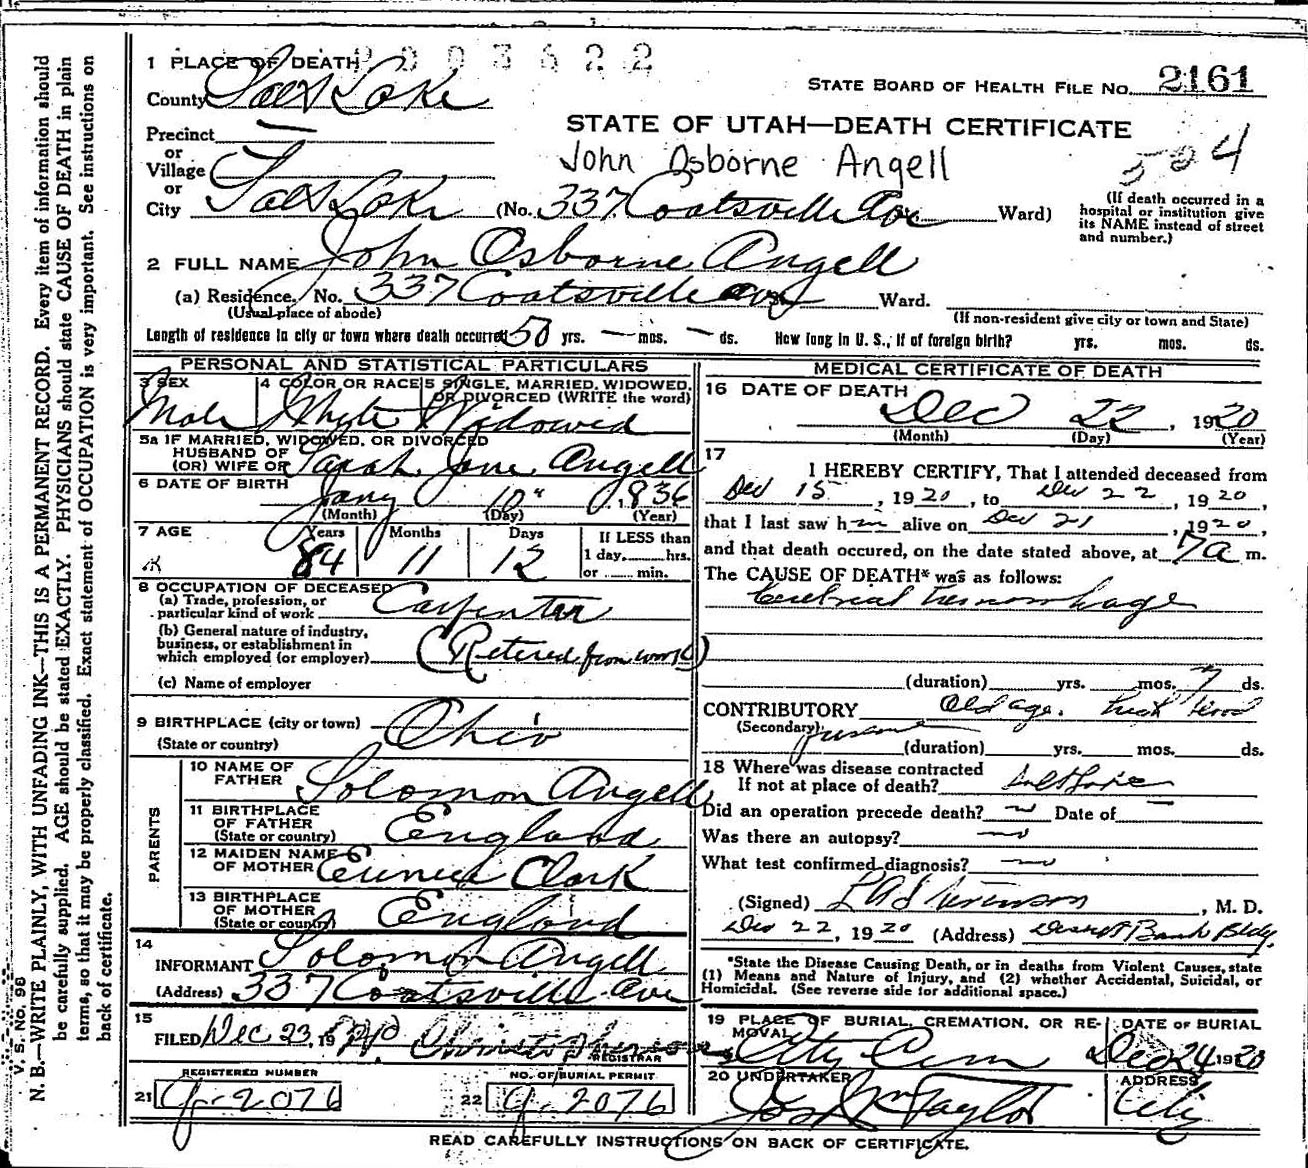 2003622
1 PLACE OF DEATH
County Salt Lake
STATE BOARD OF HEALTH FILE NO. 2161
STATE OF UTAH—DEATH CERTIFICATE
Precinct —
or
Village
or
John Osborne Angell
504
City Salt Lake (No. 337 Coatsville Ave Ward)
(If death occurred in a
hospital or institution give
its NAME instead of street
and number.)
2 FULL NAME John Osborne Angell
(a) Residence. No. 337 Coatsville Ave Ward.
(Usual place of abode)
(If non-resident give city or town and State)
Length of residence in city or town where death occurred 50 yrs. — mos. — ds. How long in U. S., if of foreign birth? yrs. mos. ds.
PERSONAL AND STATISTICAL PARTICULARS
3 SEX
Male
4 COLOR OR RACE
White
5 SINGLE, MARRIED, WIDOWED,
OR DIVORCED (WRITE the word)
Widowed
5a IF MARRIED, WIDOWED, OR DIVORCED
HUSBAND OF
(OR) WIFE OF Sarah Jane Angell
6 DATE OF BIRTH
Jany 10" 1836
(Month) (Day) (Year)
7 AGE
Years Months Days
84 11 12
If LESS than
1 day, hrs.
or min.
8 OCCUPATION OF DECEASED
(a) Trade, profession, or
particular kind of work Carpenter
(b) General nature of industry,
business, or establishment in
which employed (or employer) (Retired from work)
(c) Name of employer
9 BIRTHPLACE (city or town)
(State or country) Ohio
PARENTS
10 NAME OF
FATHER Solomon Angell
11 BIRTHPLACE
OF FATHER
(State or country) England
12 MAIDEN NAME
OF MOTHER Eunice Clark
13 BIRTHPLACE
OF MOTHER
(State or country) England
14
INFORMANT Solomon Angell
(Address) 337 Coatsville Ave
15
FILED Dec 23, 1920
REGISTRAR
REGISTERED NUMBER
21 G-2076
NO. OF BURIAL PERMIT
22 G-2076
MEDICAL CERTIFICATE OF DEATH
16 DATE OF DEATH
Dec 22, 1920
(Month) (Day) (Year)
17
I HEREBY CERTIFY, That I attended deceased from
Dec 15, 1920, to Dec 22, 1920,
that I last saw him alive on Dec 21, 1920,
and that death occured, on the date stated above, at 7a m.
The CAUSE OF DEATH* was as follows:
Cerebral hemorrhage
(duration) yrs. mos. 7 ds.
CONTRIBUTORY Old age. high blood
(Secondary) pressure
(duration) yrs. mos. ds.
18 Where was disease contracted
If not at place of death? Salt Lake
Did an operation precede death? no Date of —
Was there an autopsy? no
What test confirmed diagnosis? no
(Signed) Stevenson, M. D.
Dec 22, 1920 (Address) Deseret Bank Bldg.
*State the Disease Causing Death, or in deaths from Violent Causes, state
(1) Means and Nature of Injury, and (2) whether Accidental, Suicidal, or
Homicidal. (See reverse side for additional space.)
19 PLACE OF BURIAL, CREMATION, OR RE-
MOVAL
City Cem
DATE OF BURIAL
Dec 24 1920
20 UNDERTAKER
Jos Wm Taylor
ADDRESS
City
READ CAREFULLY INSTRUCTIONS ON BACK OF CERTIFICATE.
V. S. No. 98
N. B.—WRITE PLAINLY, WITH UNFADING INK—THIS IS A PERMANENT RECORD. Every item of information should
be carefully supplied. AGE should be stated EXACTLY. PHYSICIANS should state CAUSE OF DEATH in plain
terms, so that it may be properly classified. Exact statement of OCCUPATION is very important. See instructions on
back of certificate.